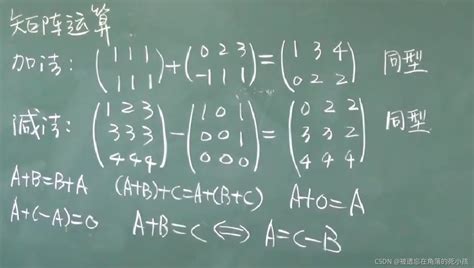 矩阵运算
加法: (1 1 1 / 1 1 1) + (0 2 3 / -1 1 1) = (1 3 4 / 0 2 2) 同型
减法: (1 2 3 / 3 3 3 / 4 4 4) - (1 0 1 / 0 0 1 / 0 0 0) = (0 2 2 / 3 3 2 / 4 4 4) 同型
A+B=B+A (A+B)+C=A+(B+C) A+0=A
A+(-A)=0 A+B=C ⇔ A=C-B
CSDN @被遗忘在角落的死小孩